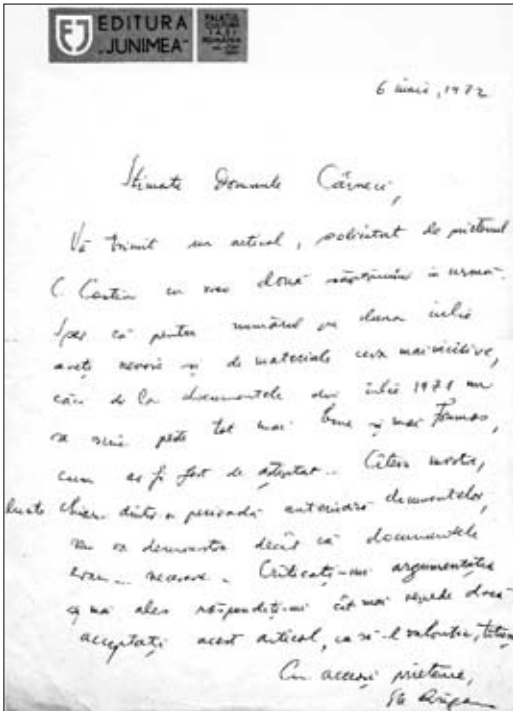 EDITURA
„JUNIMEA”
PALATUL
CULTURII
IAȘI
ROMÂNIA
6 iunie, 1972
Stimate Domnule Cârneci,
Vă trimit un articol, solicitat de prietenul
C. Costin cu vreo două săptămîni în urmă.
Sper că pentru numărul pe luna iulie
aveți nevoie și de materiale ceva mai incisive,
căci de la documentele din iulie 1971 nu
se scrie peste tot mai bine și mai frumos,
cum ar fi fost de așteptat. Cîteva mostre,
luate chiar dintr-o perioadă anterioară documentelor,
nu va demonstra decît că documentele
erau necesare. Criticați-mi argumentația
și mai ales răspundeți-mi cît mai repede dacă
acceptați acest articol, ca să-l
Cu aceeași prietenie,